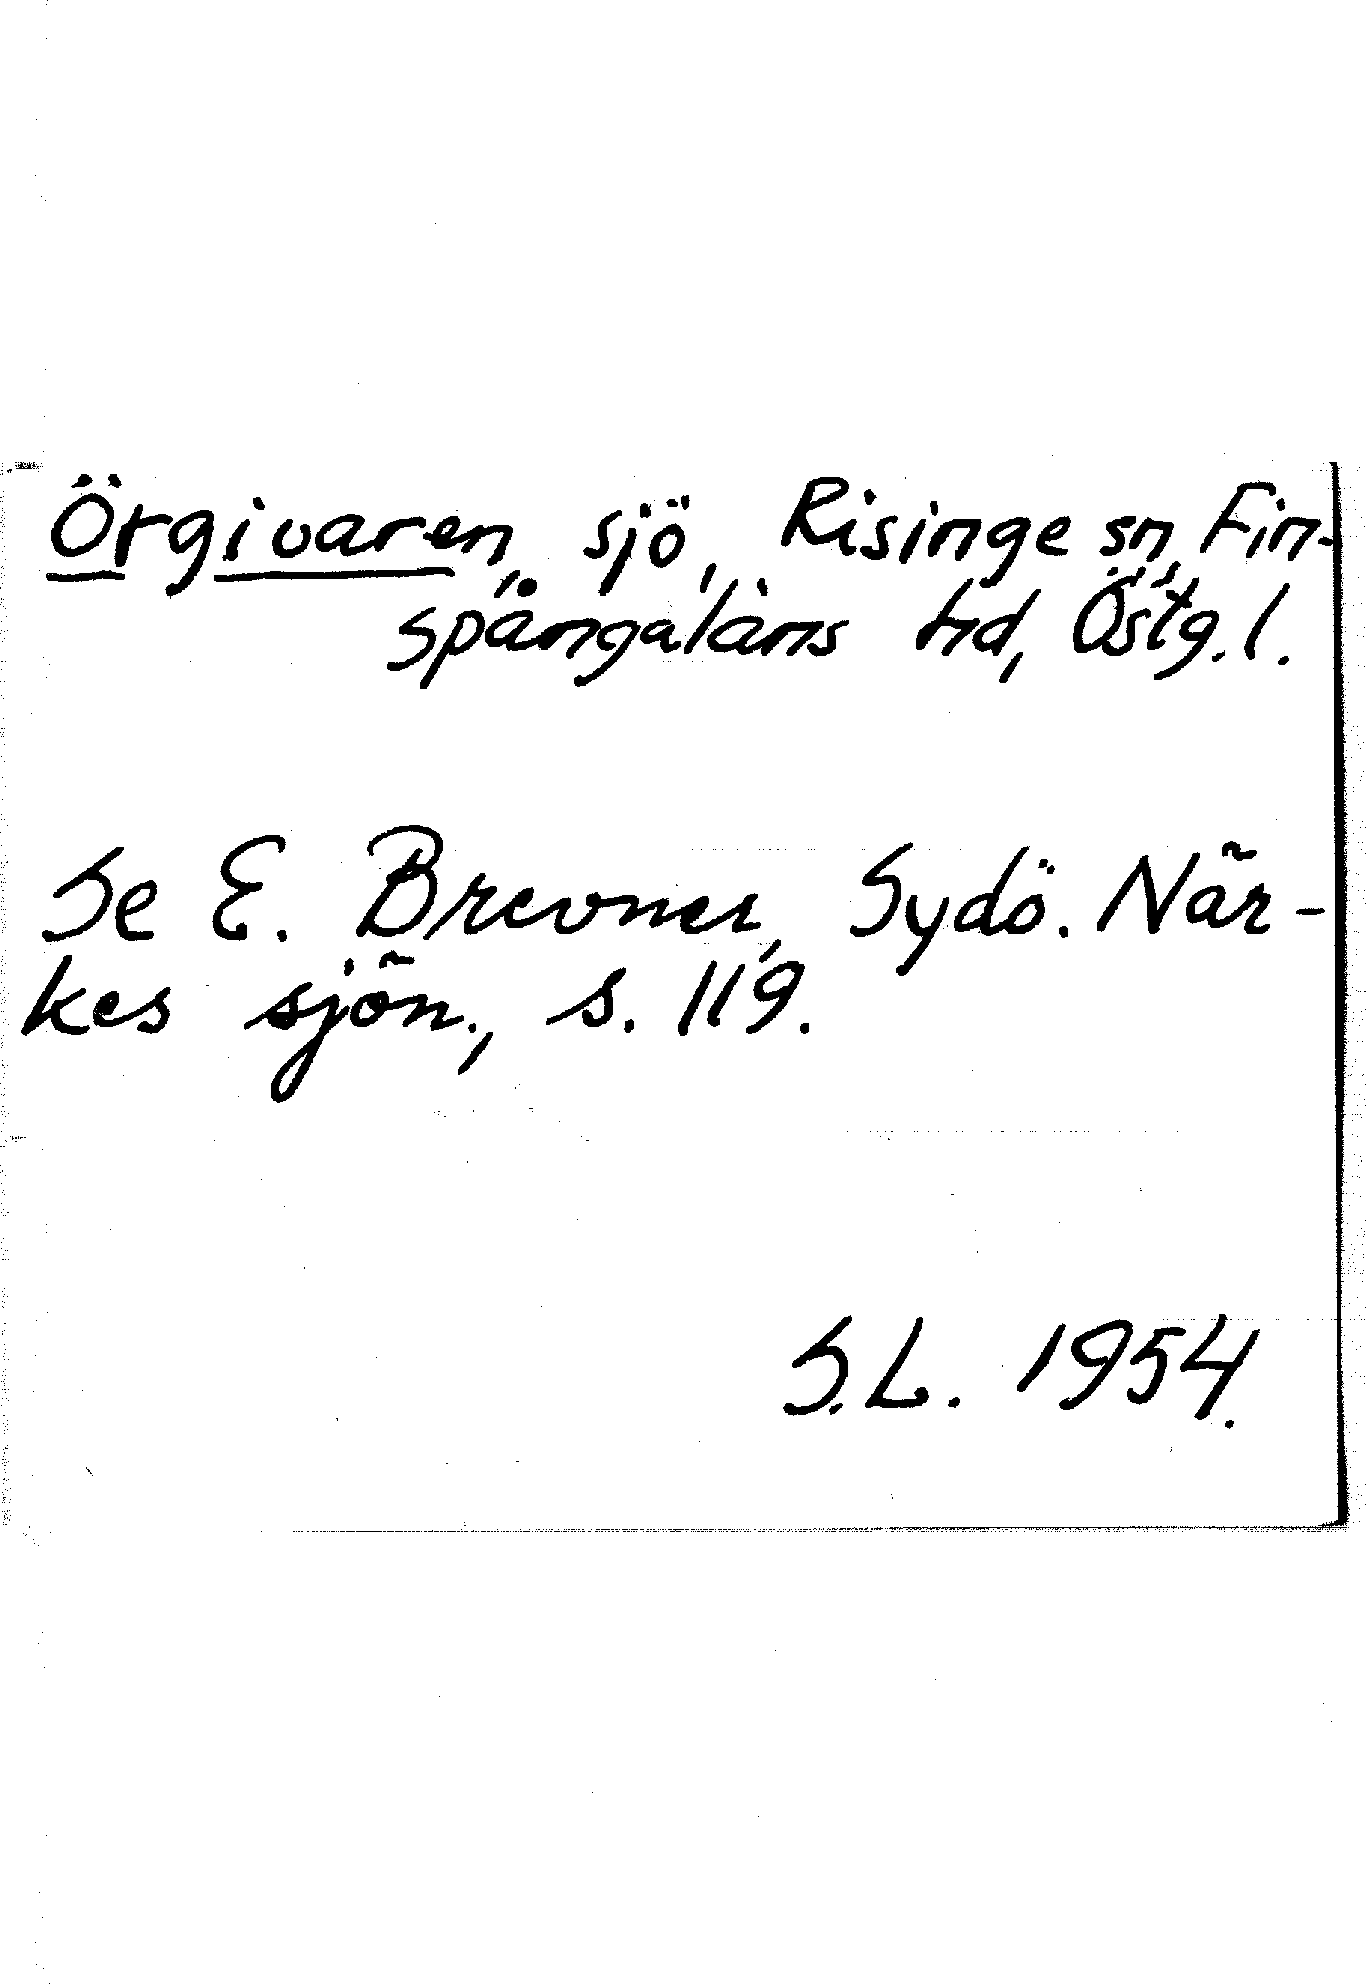 Örgivaren, sjö, Risinge sn, Fin-
spångaläns hd, Östg. l.
Se E. Brevner, Sydö. När-
kes sjön., s. 119.
S.L. 1954.